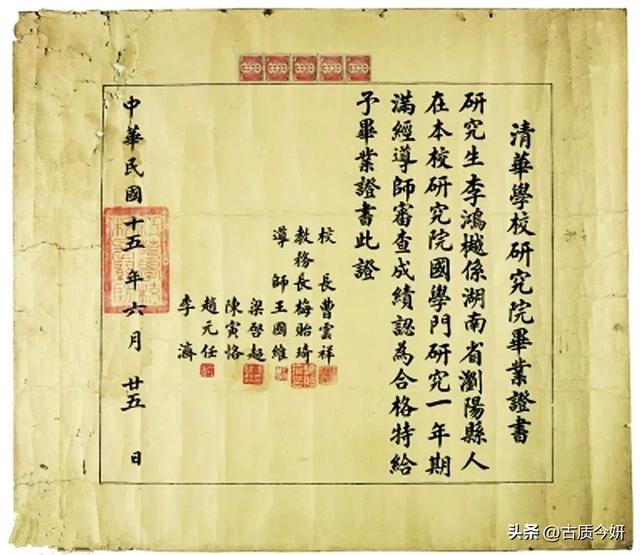 清華學校研究院畢業證書
研究生李鴻樾係湖南省瀏陽縣人
在本校研究院國學門研究一年期
滿經導師審查成績認為合格特給
予畢業證書此證
校長曹雲祥
教務長梅貽琦
導師王國維
梁啓超
陳寅恪
趙元任
李濟
中華民國十五年六月廿五日
头条 @古质今妍